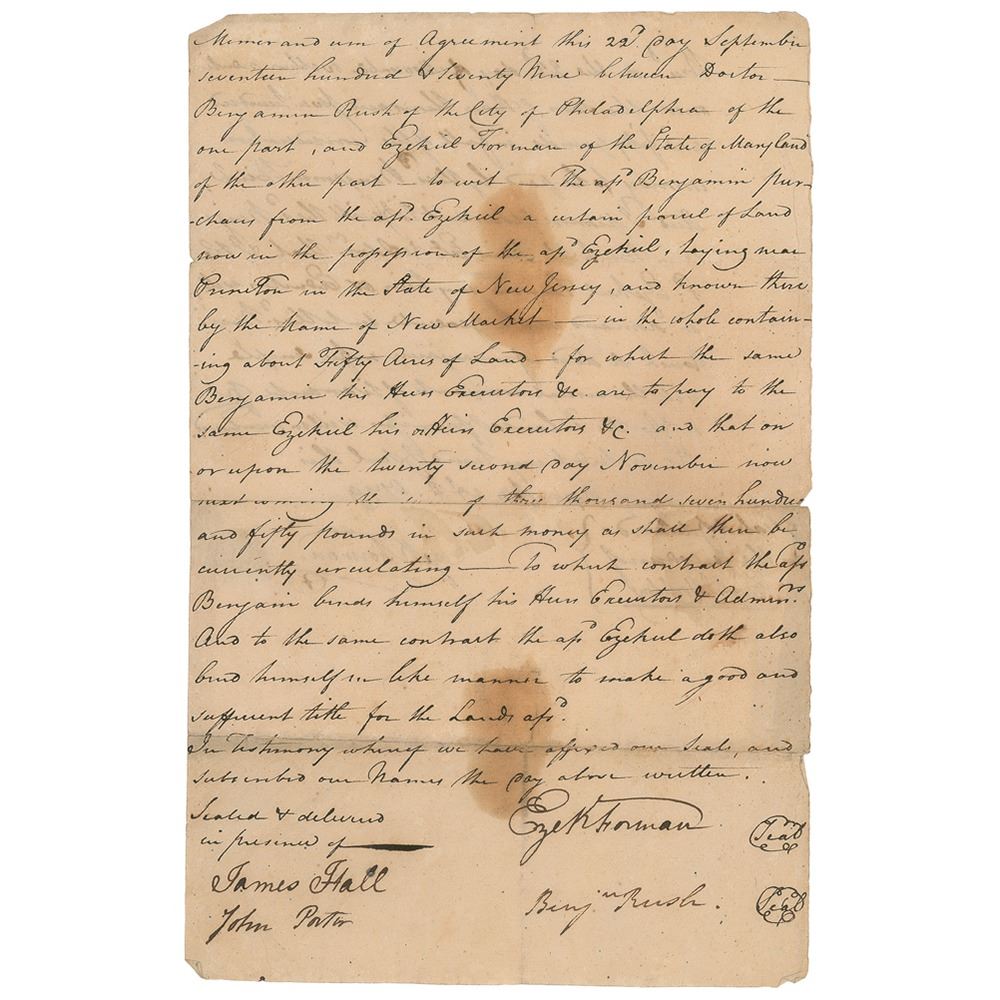 Memorandum of Agreement this 22d. Day September
seventeen hundred & seventy Nine between Doctor —
Benjamin Rush of the City of Philadelphia of the
one part, and Ezekiel Forman of the State of Maryland
of the other part — to wit — The afsd. Benjamin pur-
-chases from the afsd. Ezekiel a certain parcel of Land
now in the possession of the afsd Ezekiel, laying near
Princeton in the State of New Jersey, and known there
by the Name of New Market — in the whole contain-
-ing about Fifty Acres of Land — for which the same
Benjamin his Heirs Executors &c. are to pay to the
same Ezekiel his Heirs Executors &c. and that on
or upon the twenty second day November now
next coming the of three thousand seven hundred
and fifty pounds in such money as shall then be
currently circulating — To which contract the afsd
Benjain binds himself his Heirs Executors & Adminrs.
And to the same contract the afsd Ezekiel doth also
bind himself in like manner to make a good and
sufficient title for the Lands afsd.
In Testimony whereof we have affixed our Seals, and
subscribed our Names the day above written.
Sealed & delivered
in presence of
Ezekl Forman
Seal
James Hall
Benjn Rush.
Seal
John Porter